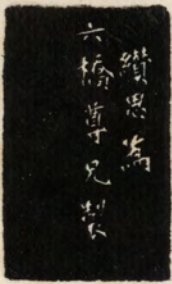 續恩為
六橋尊兄製